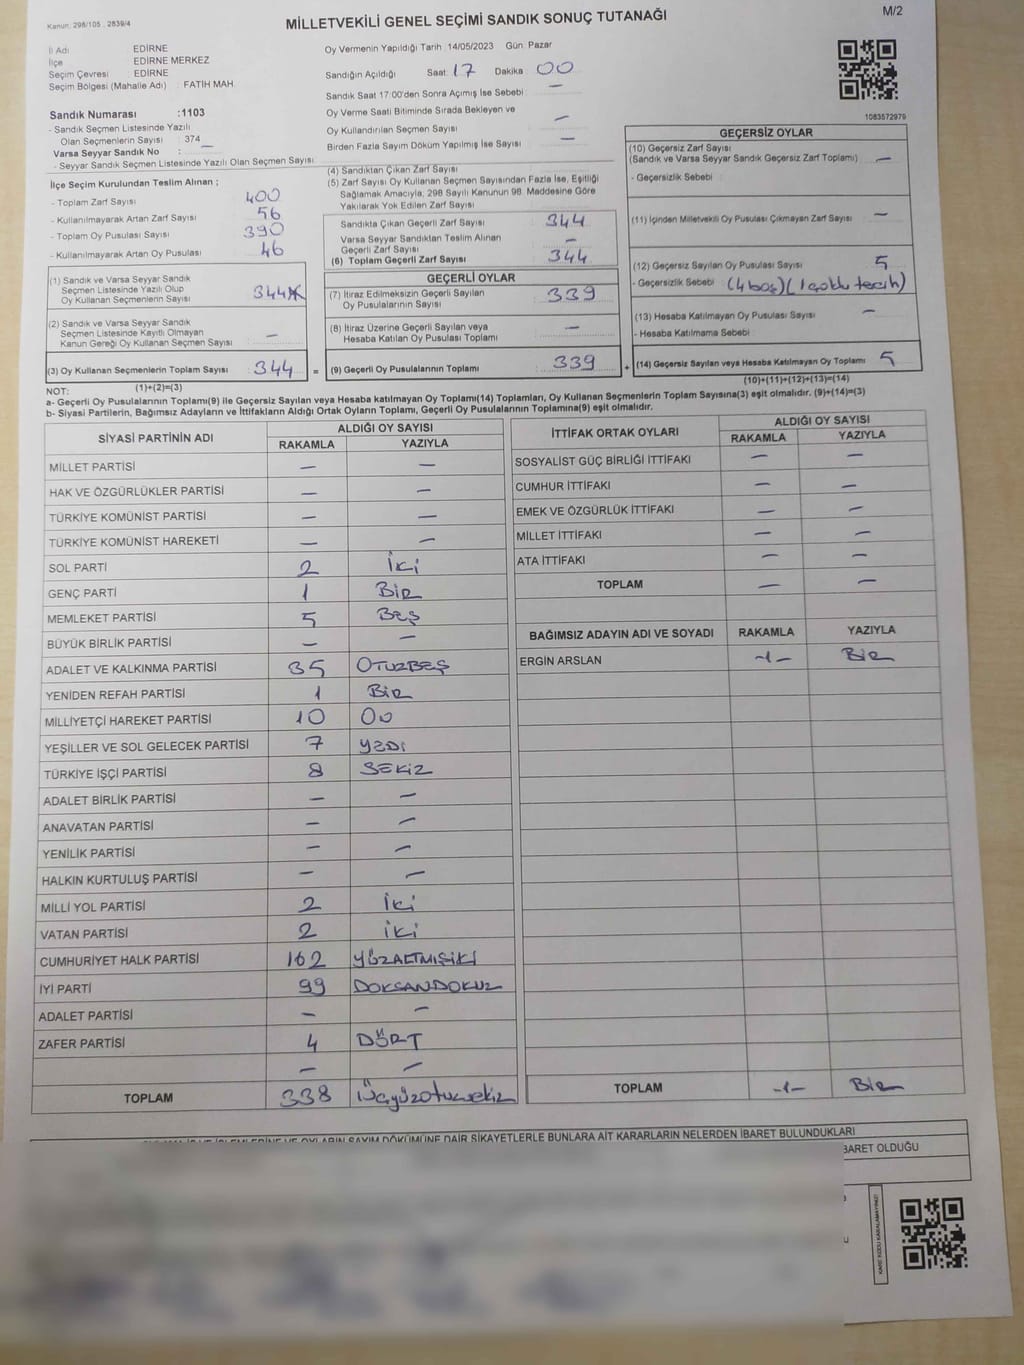 Kanun: 298/105 . 2839/4
MİLLETVEKİLİ GENEL SEÇİMİ SANDIK SONUÇ TUTANAĞI
M/2
İl Adı : EDİRNE
İlçe : EDİRNE MERKEZ
Seçim Çevresi : EDİRNE
Seçim Bölgesi (Mahalle Adı) : FATİH MAH
Sandık Numarası :1103
- Sandık Seçmen Listesinde Yazılı
Olan Seçmenlerin Sayısı : 374
Varsa Seyyar Sandık No : –
- Seyyar Sandık Seçmen Listesinde Yazılı Olan Seçmen Sayısı
Oy Vermenin Yapıldığı Tarih : 14/05/2023 Gün: Pazar
Sandığın Açıldığı Saat: 17 Dakika: 00
Sandık Saat 17:00'den Sonra Açımış İse Sebebi : –
Oy Verme Saati Bitiminde Sırada Bekleyen ve
Oy Kullandırılan Seçmen Sayısı : –
Birden Fazla Sayım Döküm Yapılmış İse Sayısı : –
1083572979
İlçe Seçim Kurulundan Teslim Alınan ;
- Toplam Zarf Sayısı : 400
- Kullanılmayarak Artan Zarf Sayısı : 56
- Toplam Oy Pusulası Sayısı : 390
- Kullanılmayarak Artan Oy Pusulası : 46
(1) Sandık ve Varsa Seyyar Sandık
Seçmen Listesinde Yazılı Olup
Oy Kullanan Seçmenlerin Sayısı : 344
(2) Sandık ve Varsa Seyyar Sandık
Seçmen Listesinde Kayıtlı Olmayan
Kanun Gereği Oy Kullanan Seçmen Sayısı : –
(3) Oy Kullanan Seçmenlerin Toplam Sayısı : 344 =
(1)+(2)=(3)
(4) Sandıktan Çıkan Zarf Sayısı
(5) Zarf Sayısı Oy Kullanan Seçmen Sayısından Fazla İse, Eşitliği
Sağlamak Amacıyla, 298 Sayılı Kanunun 98. Maddesine Göre
Yakılarak Yok Edilen Zarf Sayısı
Sandıkta Çıkan Geçerli Zarf Sayısı : 344
Varsa Seyyar Sandıktan Teslim Alınan
Geçerli Zarf Sayısı : –
(6) Toplam Geçerli Zarf Sayısı : 344
GEÇERLİ OYLAR
(7) İtiraz Edilmeksizin Geçerli Sayılan
Oy Pusulalarının Sayısı : 339
(8) İtiraz Üzerine Geçerli Sayılan veya
Hesaba Katılan Oy Pusulası Toplamı : –
(9) Geçerli Oy Pusulalarının Toplamı : 339 +
GEÇERSİZ OYLAR
(10) Geçersiz Zarf Sayısı
(Sandık ve Varsa Seyyar Sandık Geçersiz Zarf Toplamı) –
- Geçersizlik Sebebi :
(11) İçinden Milletvekili Oy Pusulası Çıkmayan Zarf Sayısı : –
(12) Geçersiz Sayılan Oy Pusulası Sayısı : 5
- Geçersizlik Sebebi : (4 boş) (1 çoklu tercih)
(13) Hesaba Katılmayan Oy Pusulası Sayısı : –
- Hesaba Katılmama Sebebi :
(14) Geçersiz Sayılan veya Hesaba Katılmayan Oy Toplamı : 5
(10)+(11)+(12)+(13)=(14)
NOT:
a- Geçerli Oy Pusulalarının Toplamı(9) ile Geçersiz Sayılan veya Hesaba katılmayan Oy Toplamı(14) Toplamları, Oy Kullanan Seçmenlerin Toplam Sayısına(3) eşit olmalıdır. (9)+(14)=(3)
b- Siyasi Partilerin, Bağımsız Adayların ve İttifakların Aldığı Ortak Oyların Toplamı, Geçerli Oy Pusulalarının Toplamına(9) eşit olmalıdır.
SİYASİ PARTİNİN ADI ALDIĞI OY SAYISI
RAKAMLA YAZIYLA
MİLLET PARTİSİ – –
HAK VE ÖZGÜRLÜKLER PARTİSİ – –
TÜRKİYE KOMÜNİST PARTİSİ – –
TÜRKİYE KOMÜNİST HAREKETİ – –
SOL PARTİ 2 İki
GENÇ PARTİ 1 BİR
MEMLEKET PARTİSİ 5 BEŞ
BÜYÜK BİRLİK PARTİSİ – –
ADALET VE KALKINMA PARTİSİ 35 OTUZBEŞ
YENİDEN REFAH PARTİSİ 1 BİR
MİLLİYETÇİ HAREKET PARTİSİ 10 On
YEŞİLLER VE SOL GELECEK PARTİSİ 7 YEDİ
TÜRKİYE İŞÇİ PARTİSİ 8 SEKİZ
ADALET BİRLİK PARTİSİ – –
ANAVATAN PARTİSİ – –
YENİLİK PARTİSİ – –
HALKIN KURTULUŞ PARTİSİ – –
MİLLİ YOL PARTİSİ 2 İki
VATAN PARTİSİ 2 İki
CUMHURİYET HALK PARTİSİ 162 YÜZALTMIŞİKİ
İYİ PARTİ 99 DOKSANDOKUZ
ADALET PARTİSİ – –
ZAFER PARTİSİ 4 DÖRT
– –
TOPLAM 338 Üçyüzotuzsekiz
İTTİFAK ORTAK OYLARI ALDIĞI OY SAYISI
RAKAMLA YAZIYLA
SOSYALİST GÜÇ BİRLİĞİ İTTİFAKI – –
CUMHUR İTTİFAKI – –
EMEK VE ÖZGÜRLÜK İTTİFAKI – –
MİLLET İTTİFAKI – –
ATA İTTİFAKI – –
TOPLAM – –
BAĞIMSIZ ADAYIN ADI VE SOYADI RAKAMLA YAZIYLA
ERGİN ARSLAN -1- BİR
TOPLAM -1- BİR
OYLARIN SAYIM DÖKÜMÜNE DAİR ŞİKAYETLERLE BUNLARA AİT KARARLARIN NELERDEN İBARET BULUNDUKLARI
BARET OLDUĞU
KARE KODU KARALAMAYINIZ!